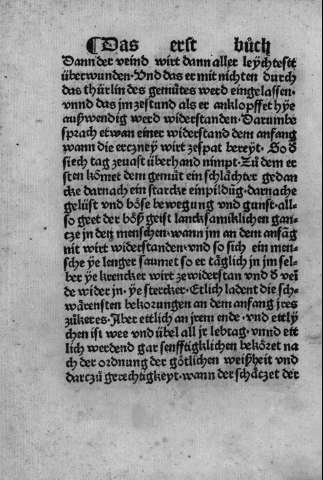 ¶Das erst bůch
Dann der veind wirt dann aller leychtest
überwunden. Vnd das er mit nichten durch
das thürlin des gemütes werd eingelassen.
vnnd das jm zestund als er anklopffet hye
außwendig werd widerstanden. Darumbe
sprach etwan einer widerstand dem anfang
wann die ertzney wirt zespat bereyt. So d
siech tag zeuast überhand nimpt. Zů dem er
sten kõmet dem gemüt ein schlächter gedan
cke darnach ein starcke einpildũg. darnache
gelüst vnd böse bewegung vnd gunst. al/
so geet der böß geist lancksamiklichen gan/
cze in den menschen. wann jm an dem anfãg
nit wirt widerstanden. vnd so sich ein men/
sche ye lenger saumet so er täglich in jm sel/
ber ye krencker wirt zewiderstan vnd d vei
de wider jn. ye stercker. Etlich ladent die sch
wärensten bekorungen an dem anfang jres
zůkeres. Aber ettlich an jrem ende. vnd ettly
chen ist wee vnd übel all jr lebtag. vnnd ett
lich werdend gar senfftigklichen bekõret na
ch der ordnung der götlichen weißheit vnd
dartzů gerechtigkeyt. wann der schäczet der